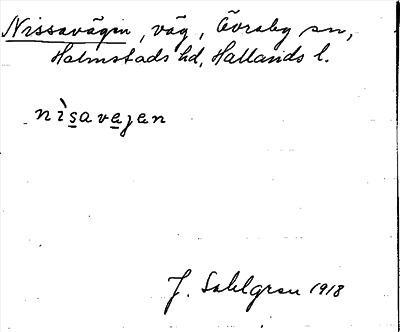 Nissavägen, väg, Övraby sn,
Halmstads hd, Hallands l.
nìsavejen
J. Sahlgren 1918